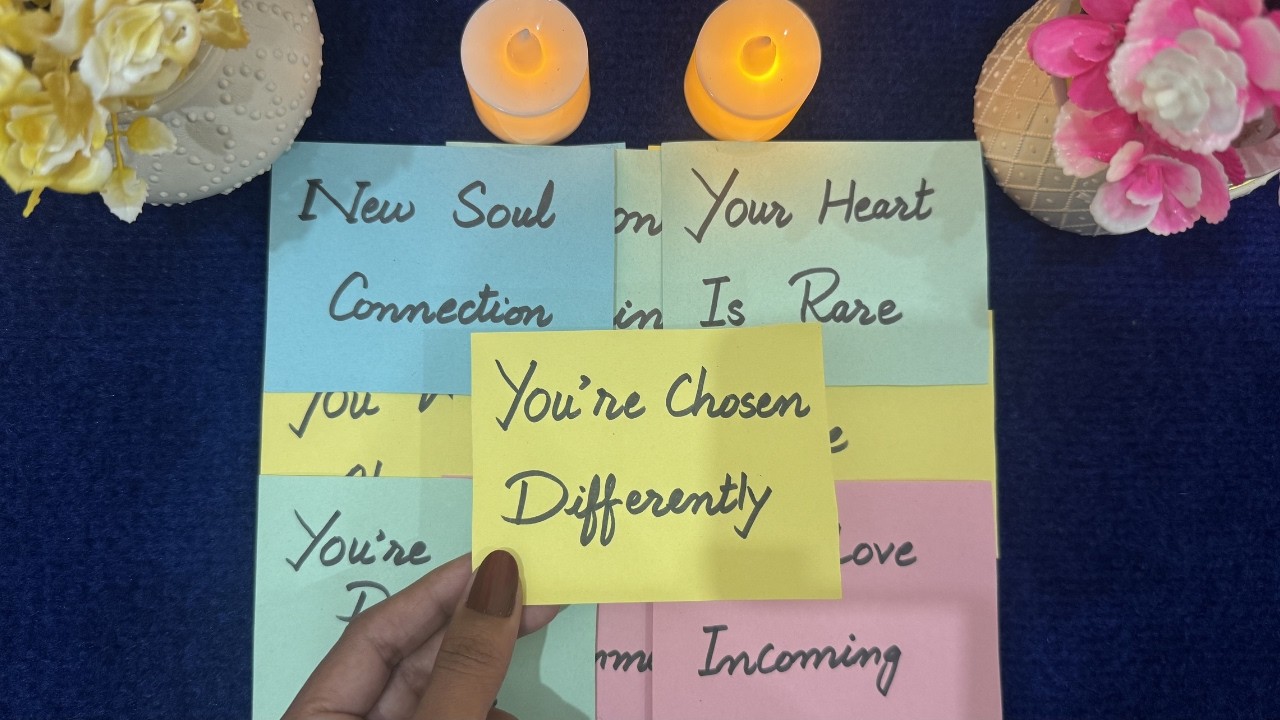 New Soul
Connection
on
in
Your Heart
Is Rare
You're Chosen
Differently
You
e
You're
D
Love
Incoming